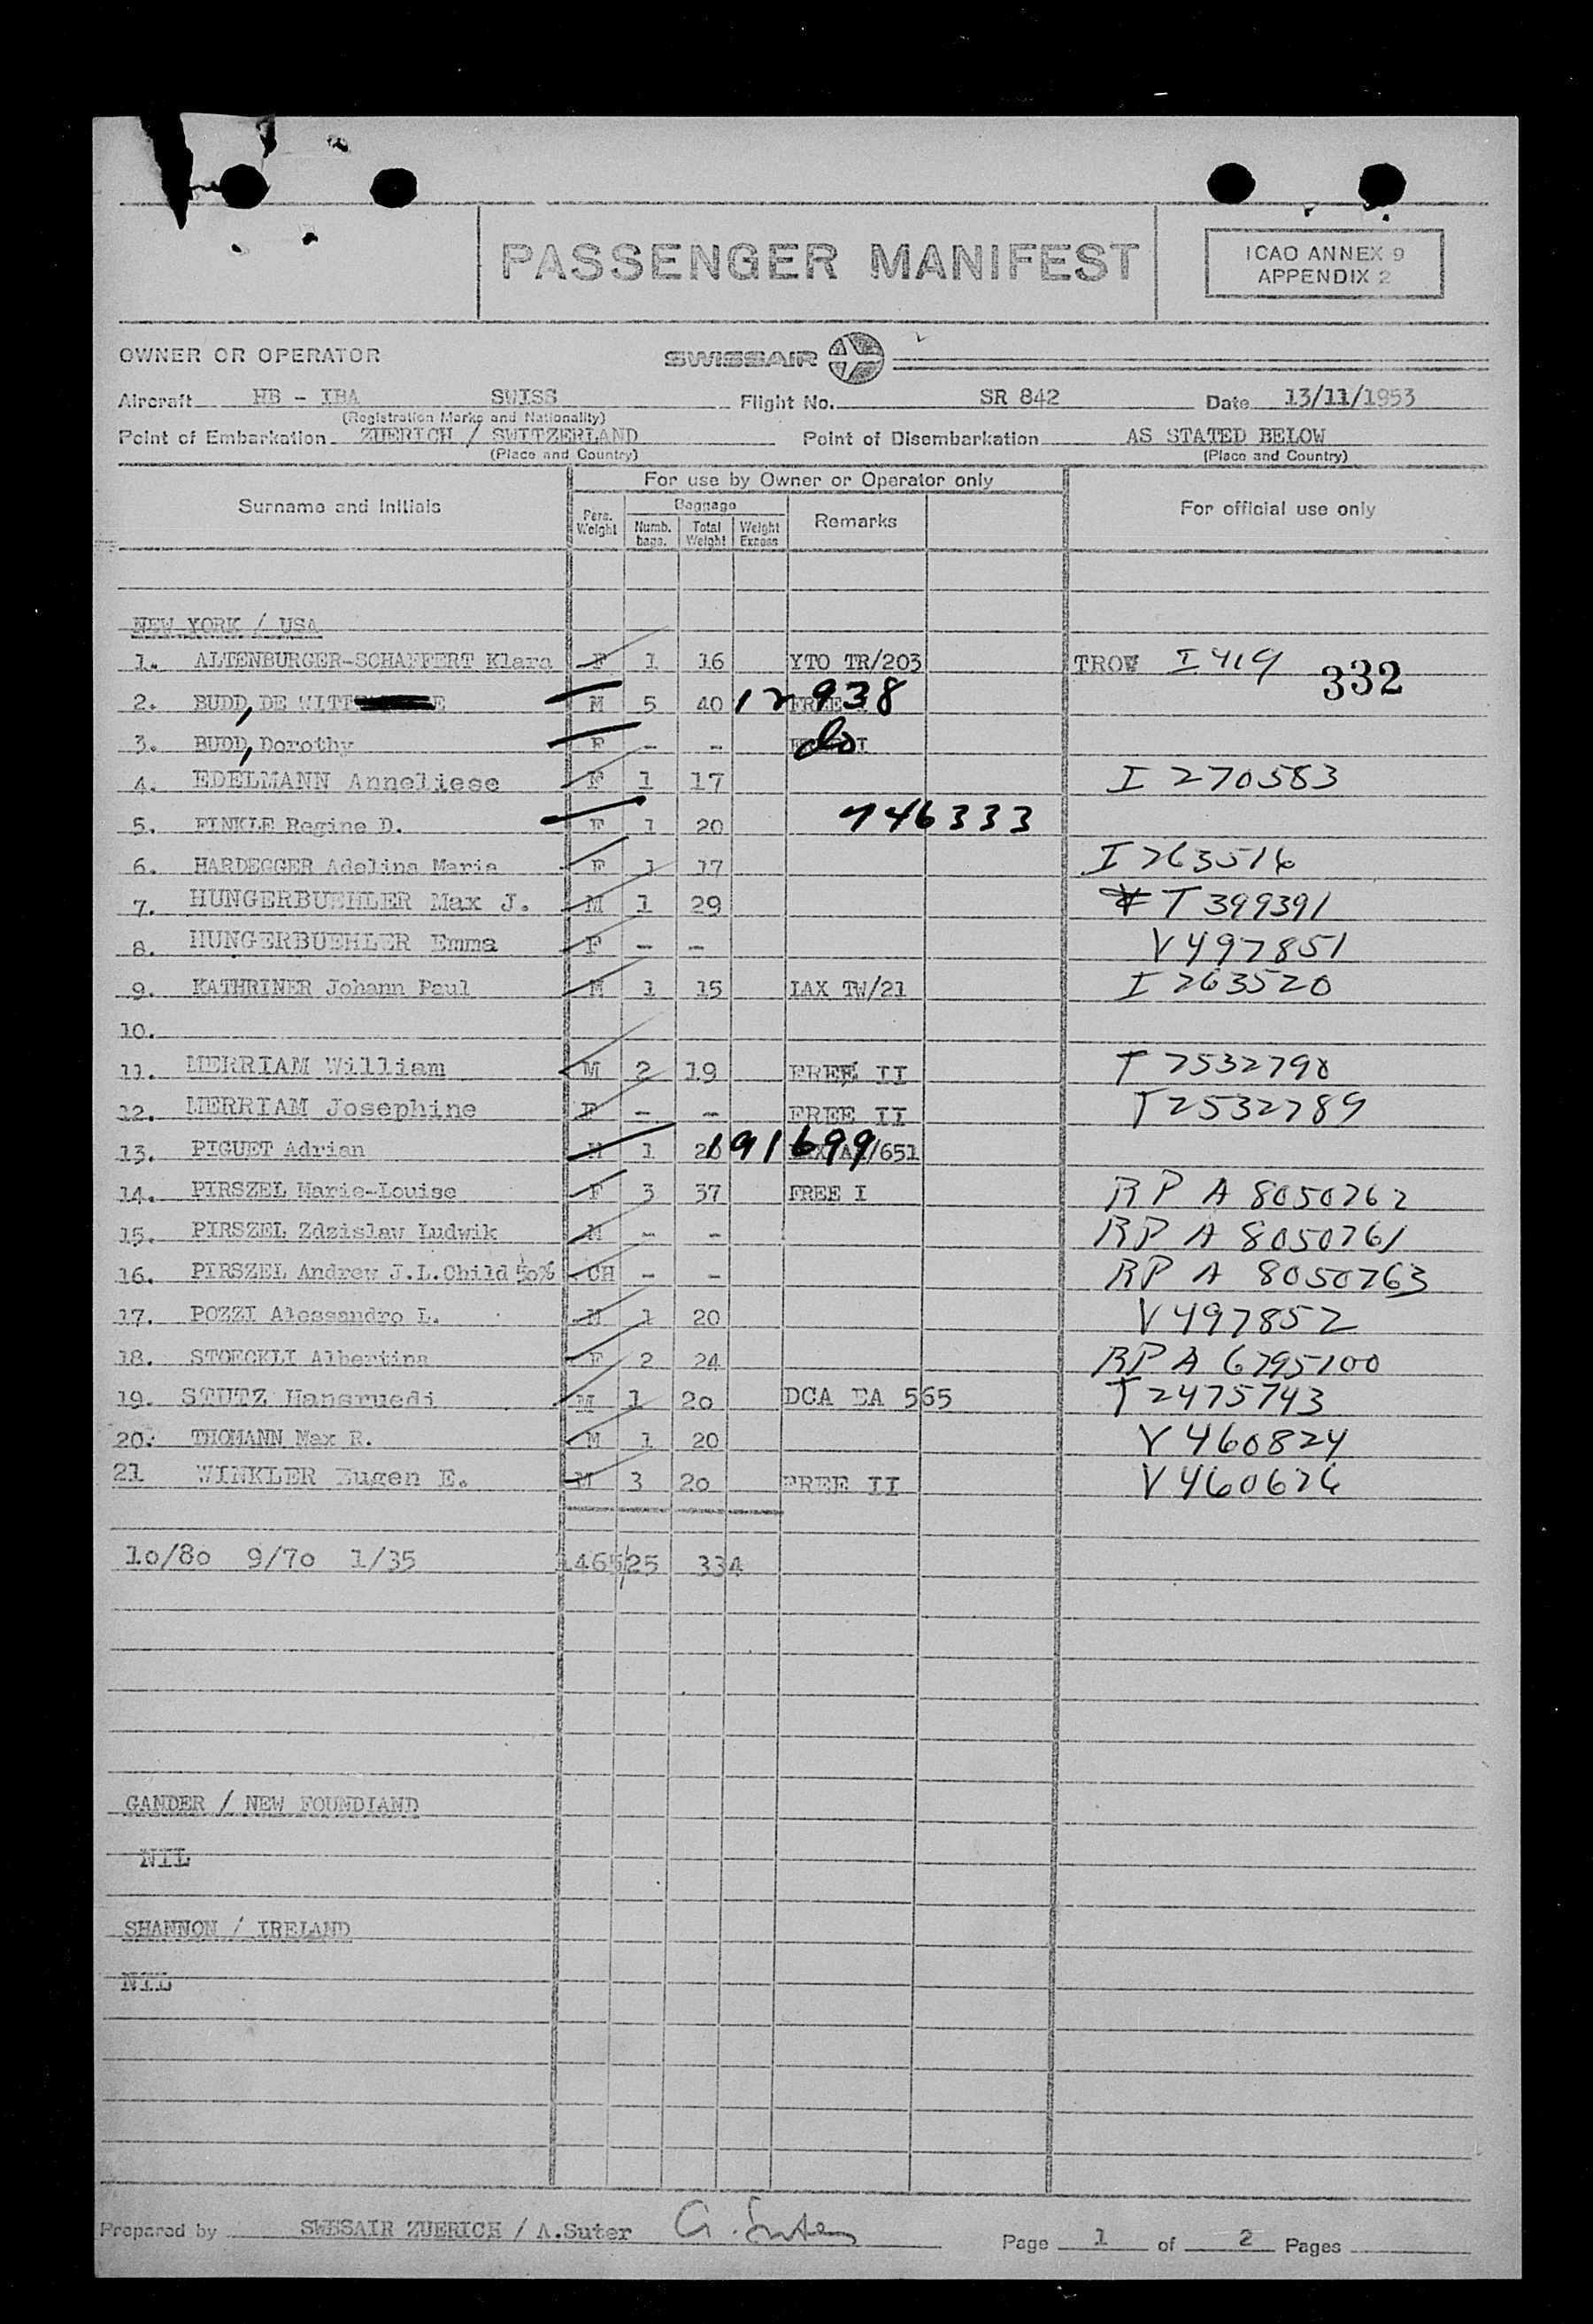 PASSENGER MANIFEST
ICAO ANNEX 9
APPENDIX 2
OWNER OR OPERATOR SWISSAIR
Aircraft HB - IBA SWISS Flight No. SR 842 Date 13/11/1953
(Registration Marks and Nationality)
Point of Embarkation ZUERICH / SWITZERLAND Point of Disembarkation AS STATED BELOW
(Place and Country) (Place and Country)
For use by Owner or Operator only
Surname and Initials Pers. Weight Baggage Numb. bags. Total Weight Weight Excess Remarks For official use only
NEW YORK / USA
1. ALTENBURGER-SCHAFFERT Klara F 1 16 YTO TR/203 TROW I 419 332
2. BUDD, DE WITT E M 5 40 12938 FREE I
3. BUDD, Dorothy F - - do
4. EDELMANN Anneliese F 1 17 I 270583
5. FINKLE Regine D. F 1 20 746333
6. HARDEGGER Adelina Maria F 1 17 I 263516
7. HUNGERBUEHLER Max J. M 1 29 T 399391
8. HUNGERBUEHLER Emma F - - V 497851
9. KATHRINER Johann Paul M 1 15 IAX TW/21 I 263520
10.
11. MERRIAM William M 2 19 FREE II T 2532790
12. MERRIAM Josephine F - - FREE II T 2532789
13. PIGUET Adrian M 1 20 191699 /651
14. PIRSZEL Marie-Louise F 3 37 FREE I RP A 8050762
15. PIRSZEL Zdzislaw Ludwik M - - RP A 8050761
16. PIRSZEL Andrew J.L.Child 50% CH - - RP A 8050763
17. POZZI Alessandro L. M 1 20 V 497852
18. STOECKLI Albertina F 2 24 RP A 6795100
19. STUTZ Hansruedi M 1 20 DCA EA 565 T 2475743
20. THOMANN Max R. M 1 20 V 460824
21 WINKLER Eugen E. M 3 20 FREE II V 460626
10/80 9/70 1/35 1465/25 334
GANDER / NEW FOUNDIAND
NIL
SHANNON / IRELAND
NIL
Prepared by SWSSAIR ZUERICH / A.Suter A. Suter
Page 1 of 2 Pages